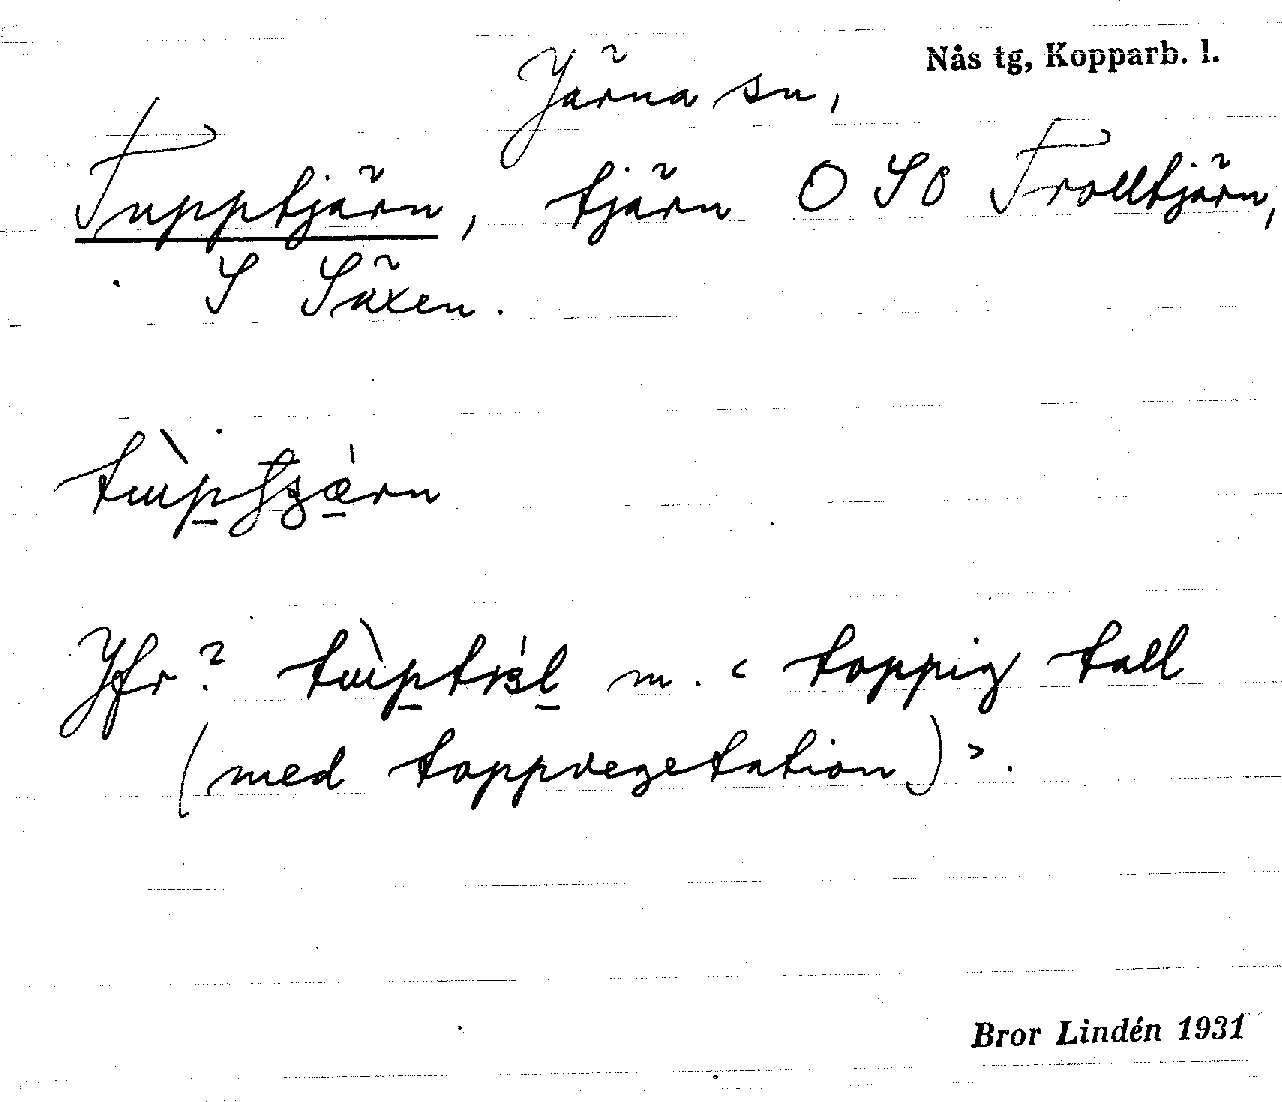 Nås tg, Kopparb. l.
Järna sn,
Tupptjärn, tjärn O SO Trolltjärn,
S Säxen.
Jfr? m. ‹ toppig tall
(med toppvegetation) ›.
Bror Lindén 1931